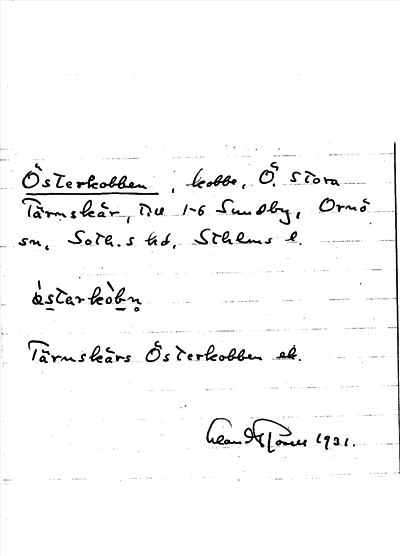 Österkobben, kobbe, Ö. Stora
Tärnskär, till 1-6 Sundby, Ornö
sn, Soth.s hd, Sthlms l.
östarkòbn̥
Tärnskärs Österkobben ek.
1931.